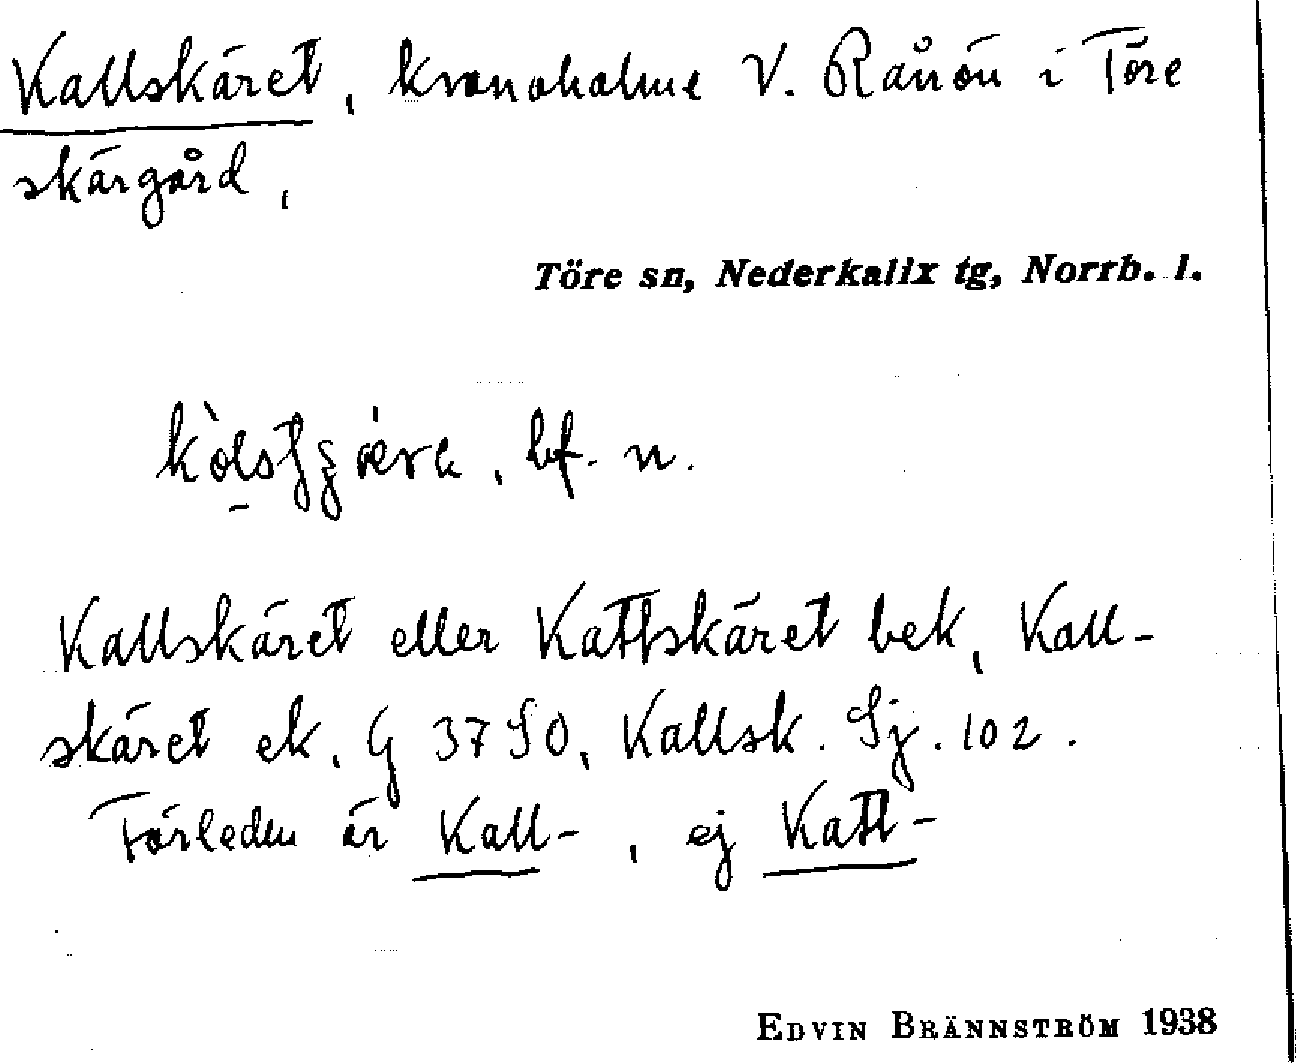 Kallskäret, kronoholme V. Rånön i Töre
skärgård,
Töre sn, Nederkalix tg, Norrb. l.
bf. n.
Kallskäret eller Kattskäret bek, Kall-
skäret ek, G 37 SO, Kallsk. Sj. 102.
Förleden är Kall-, ej Katt-
EDVIN BRÄNNSTRÖM 1938